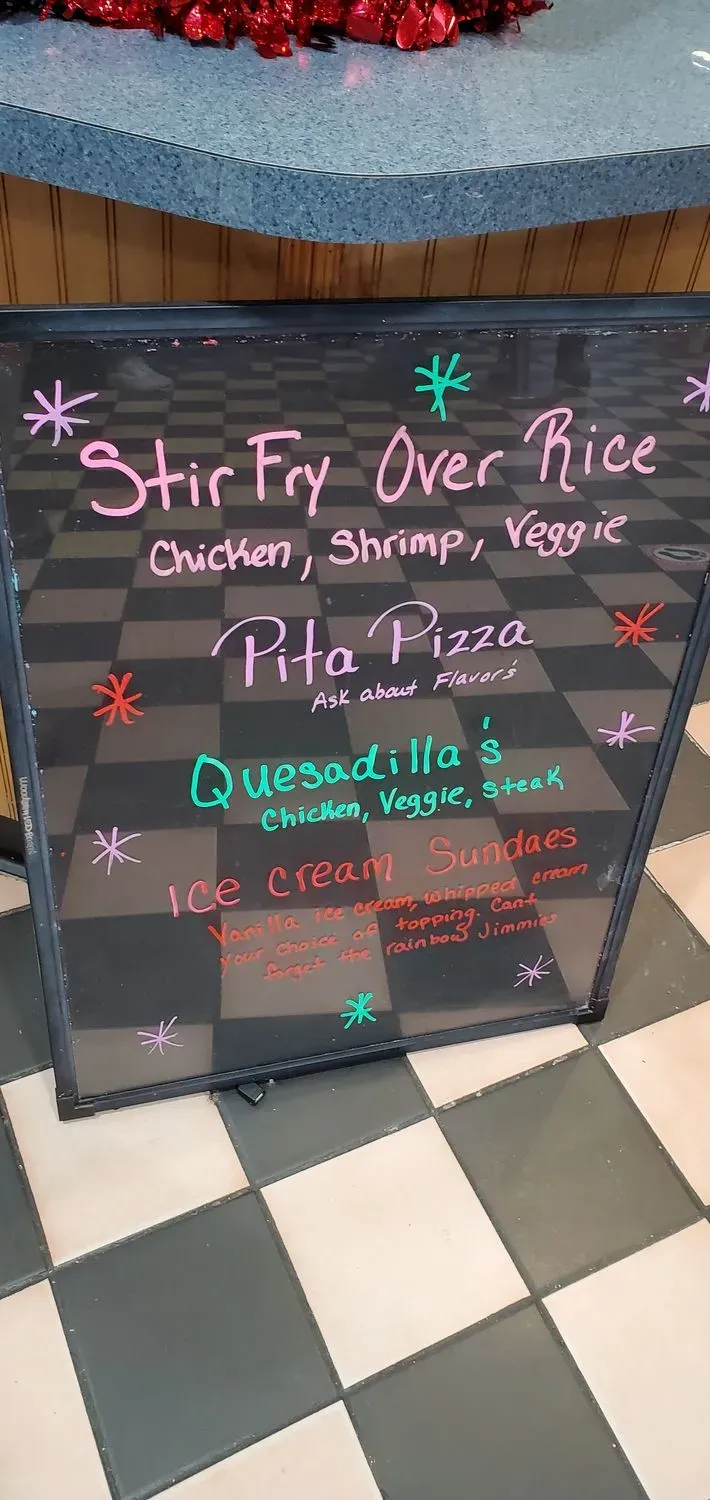 Stir Fry Over Rice
Chicken, Shrimp, Veggie
Pita Pizza
Ask about Flavor's
Quesadilla's
Chicken, Veggie, Steak
Ice cream Sundaes
Vanilla ice cream, whipped cream
your choice of topping. Cant
forget the rainbow Jimmies